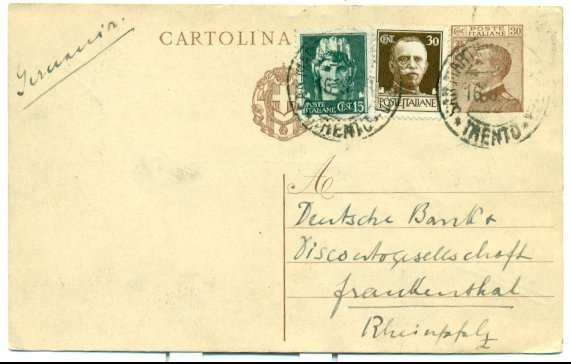 Germania.
CARTOLINA
POSTE ITALIANE CENT. 15
CENT. 30
POSTE ITALIANE
POSTE ITALIANE
C. 30
16
TRENTO
TRENTO
A
Deutsche Bank &
Discontogesellschaft
Frankenthal
Rheinpfalz